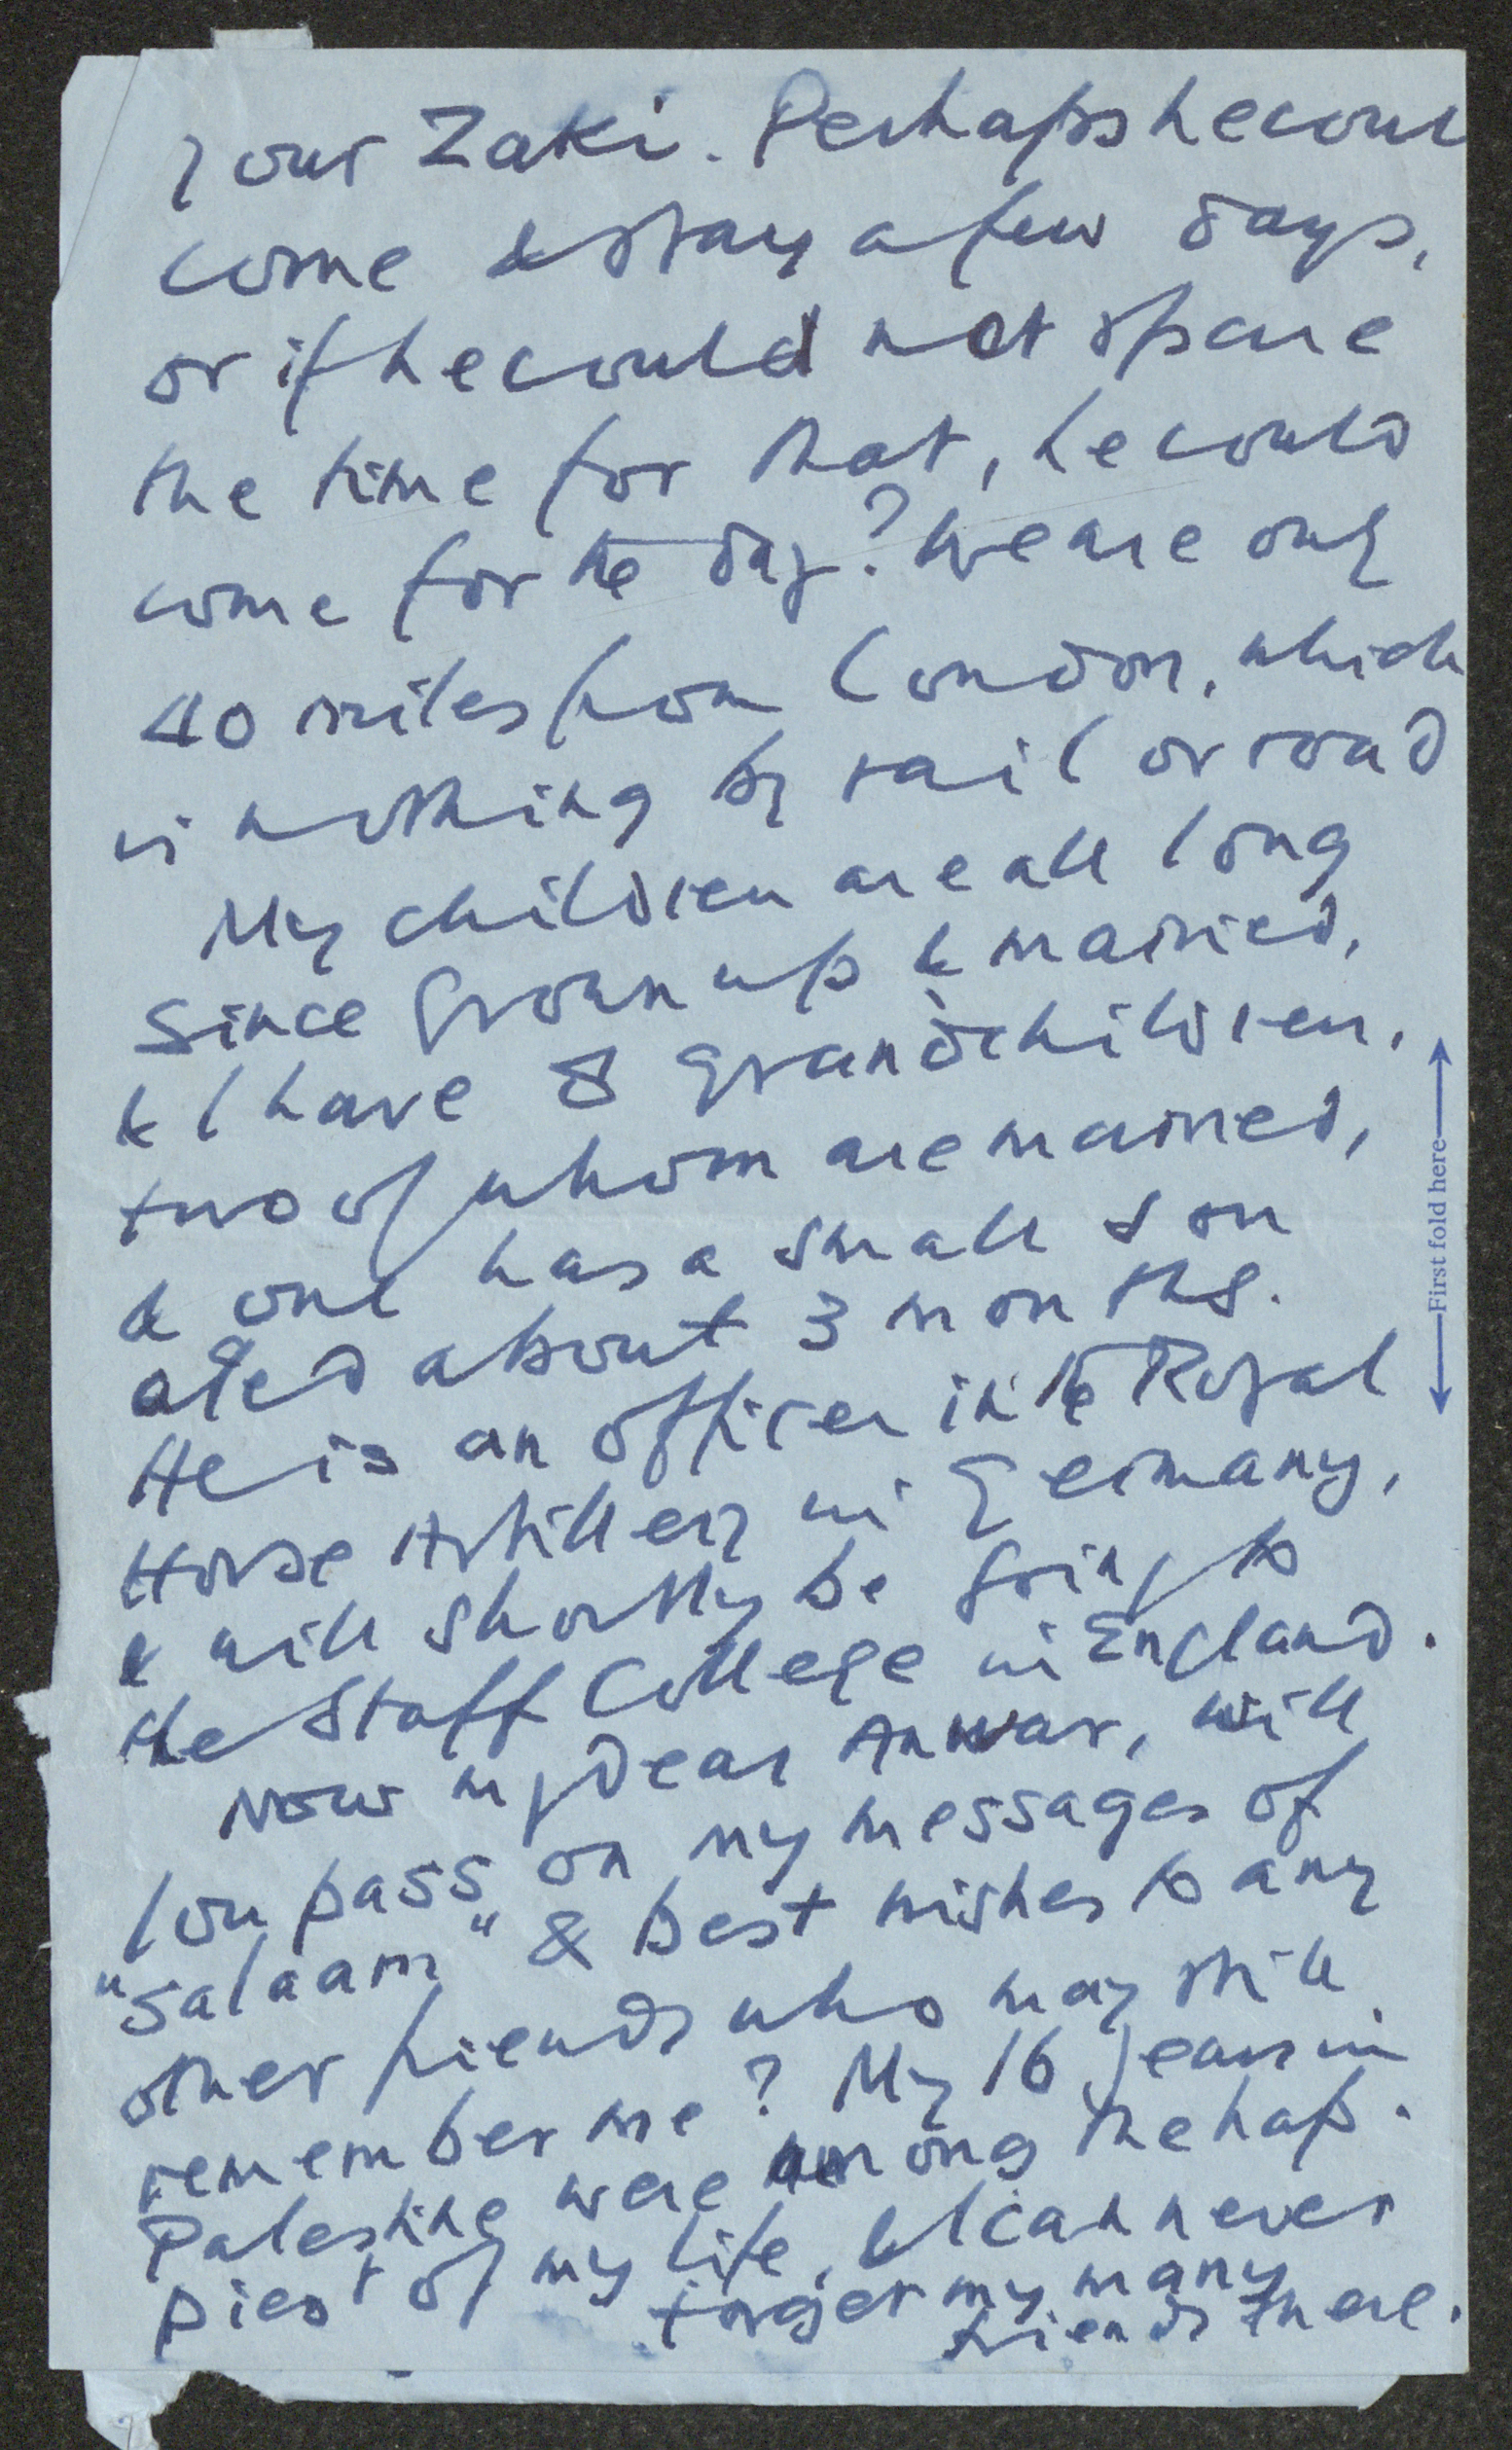 your Zaki. Perhaps he could
come & stay a few days,
or if he could not spare
the time for that, he could
come for the day? We are only
40 miles from London, which
is nothing by rail or road
My children are all long
since grown up & married,
& I have 8 grandchildren,
two of whom are married,
& one has a small son
aged about 3 months.
He is an officer in the Royal
Horse Artillery in Germany,
& will shortly be going to
the Staff College in England.
Now my dear Anwar, will
you pass on my messages of
"salaam" & best wishes to any
other friends who may still
remember me? My 16 years in
Palestine were among the hap-
piest of my life, & I can never
forget my many
friends there.
First fold here